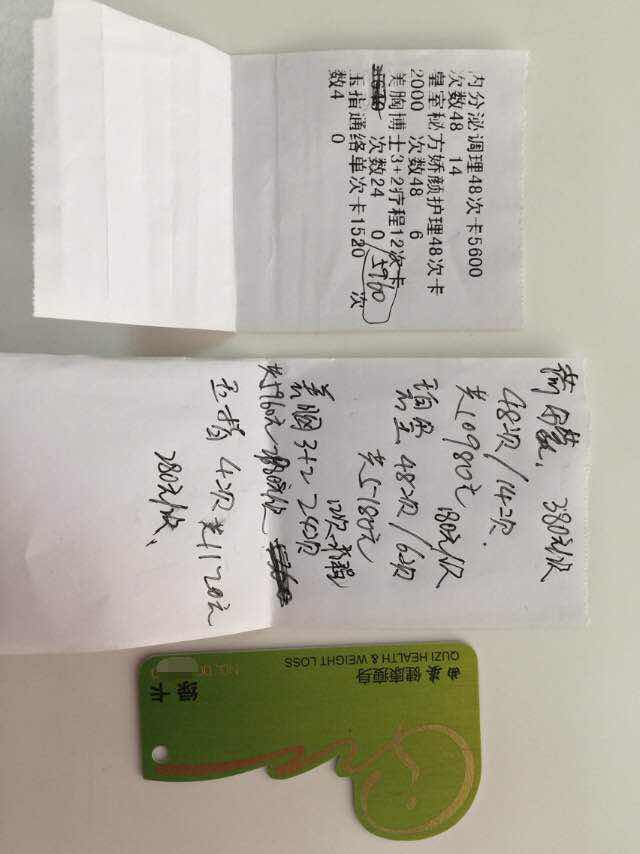 内分泌调理48次卡5600
次数48 14
皇室秘方娇颜护理48次卡
2000 次数48 6
美胸博士3+2疗程12次卡
次数24 0 5960
玉指通络单次卡1520 次
数4 0
380元/次
48次/14次.
共10980元 180元/次
48次/6次
共5180元
12次疗程
美胸3+2 24次
共5960元
玉指 4次 共1120元
280元/次、
曲姿 健康瘦身
QUZI HEALTH & WEIGHT LOSS
NO.
绿卡